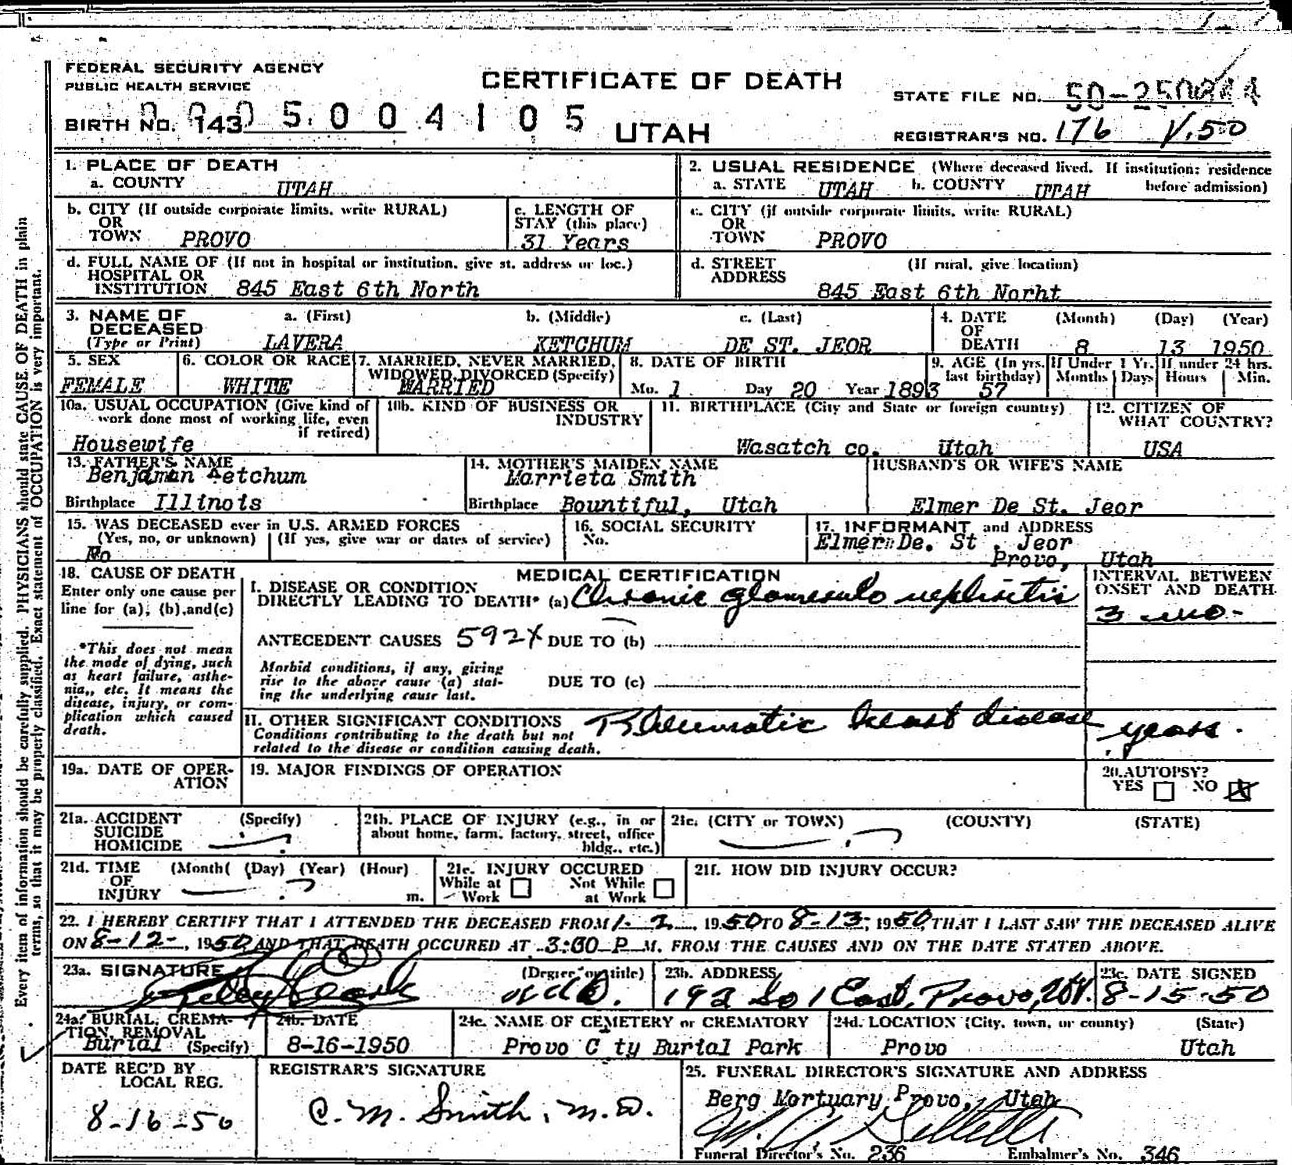 FEDERAL SECURITY AGENCY
PUBLIC HEALTH SERVICE
CERTIFICATE OF DEATH
STATE FILE NO.
BIRTH NO. 143 5 0 0 4 1 0 5
UTAH
REGISTRAR'S NO. 176 V.50
1. PLACE OF DEATH
a. COUNTY UTAH
2. USUAL RESIDENCE (Where deceased lived. If institution: residence before admission)
a. STATE UTAH b. COUNTY UTAH
b. CITY (If outside corporate limits, write RURAL)
OR
TOWN PROVO
c. LENGTH OF STAY (this place)
31 Years
c. CITY (if outside corporate limits, write RURAL)
OR
TOWN PROVO
d. FULL NAME OF (If not in hospital or institution, give st. address or loc.)
HOSPITAL OR
INSTITUTION 845 East 6th North
d. STREET ADDRESS (If rural, give location)
845 East 6th Norht
3. NAME OF DECEASED (Type or Print)
a. (First) b. (Middle) c. (Last)
LAVERA KETCHUM DE ST. JEOR
4. DATE OF DEATH (Month) (Day) (Year)
8 13 1950
5. SEX
FEMALE
6. COLOR OR RACE
WHITE
7. MARRIED, NEVER MARRIED, WIDOWED, DIVORCED (Specify)
MARRIED
8. DATE OF BIRTH
Mo. 1 Day 20 Year 1893
9. AGE (In yrs. last birthday) 57
If Under 1 Yr. Months Days
If under 24 hrs. Hours Min.
10a. USUAL OCCUPATION (Give kind of work done most of working life, even if retired)
Housewife
10b. KIND OF BUSINESS OR INDUSTRY
11. BIRTHPLACE (City and State or foreign country)
Wasatch co. Utah
12. CITIZEN OF WHAT COUNTRY?
USA
13. FATHER'S NAME
Benjaman Ketchum
Birthplace Illinois
14. MOTHER'S MAIDEN NAME
Marrieta Smith
Birthplace Bountiful, Utah
HUSBAND'S OR WIFE'S NAME
Elmer De St. Jeor
15. WAS DECEASED ever in U.S. ARMED FORCES
(Yes, no, or unknown) (If yes, give war or dates of service)
No
16. SOCIAL SECURITY No.
17. INFORMANT and ADDRESS
Elmer De. St . Jeor
Provo, Utah
18. CAUSE OF DEATH
Enter only one cause per line for (a), (b), and (c)
*This does not mean the mode of dying, such as heart failure, asthenia, etc. It means the disease, injury, or complication which caused death.
MEDICAL CERTIFICATION
INTERVAL BETWEEN ONSET AND DEATH
I. DISEASE OR CONDITION
DIRECTLY LEADING TO DEATH* (a) Chronic glomerulo nephritis
3 mo-
ANTECEDENT CAUSES 592X DUE TO (b)
Morbid conditions, if any, giving rise to the above cause (a) stating the underlying cause last.
DUE TO (c)
II. OTHER SIGNIFICANT CONDITIONS
Conditions contributing to the death but not related to the disease or condition causing death.
Rheumatic heart disease years.
19a. DATE OF OPERATION
19. MAJOR FINDINGS OF OPERATION
20. AUTOPSY?
YES NO X
21a. ACCIDENT SUICIDE HOMICIDE (Specify)
21b. PLACE OF INJURY (e.g., in or about home, farm, factory, street, office bldg., etc.)
21c. (CITY or TOWN) (COUNTY) (STATE)
21d. TIME OF INJURY (Month( (Day) (Year) (Hour) m.
21e. INJURY OCCURED
While at Work Not While at Work
21f. HOW DID INJURY OCCUR?
22. I HEREBY CERTIFY THAT I ATTENDED THE DECEASED FROM 1-2, 1950 TO 8-13, 1950, THAT I LAST SAW THE DECEASED ALIVE
ON 8-12-, 1950 AND THAT DEATH OCCURED AT 3:00 P M. FROM THE CAUSES AND ON THE DATE STATED ABOVE.
23a. SIGNATURE (Degree or title)
23b. ADDRESS
192 So 1 East, Provo, Ut.
23c. DATE SIGNED
8-15-50
24a. BURIAL, CREMATION, REMOVAL (Specify)
Burial
24b. DATE
8-16-1950
24c. NAME OF CEMETERY or CREMATORY
Provo C ty Burial Park
24d. LOCATION (City, town, or county) (State)
Provo Utah
DATE REC'D BY LOCAL REG.
8-16-50
REGISTRAR'S SIGNATURE
C. M. Smith, M.D.
25. FUNERAL DIRECTOR'S SIGNATURE AND ADDRESS
Berg Mortuary Provo, Utah
Funeral Director's No. 236 Embalmer's No. 346
Every item of information should be carefully supplied. PHYSICIANS should state CAUSE OF DEATH in plain
terms, so that it may be properly classified. Exact statement of OCCUPATION is very important.